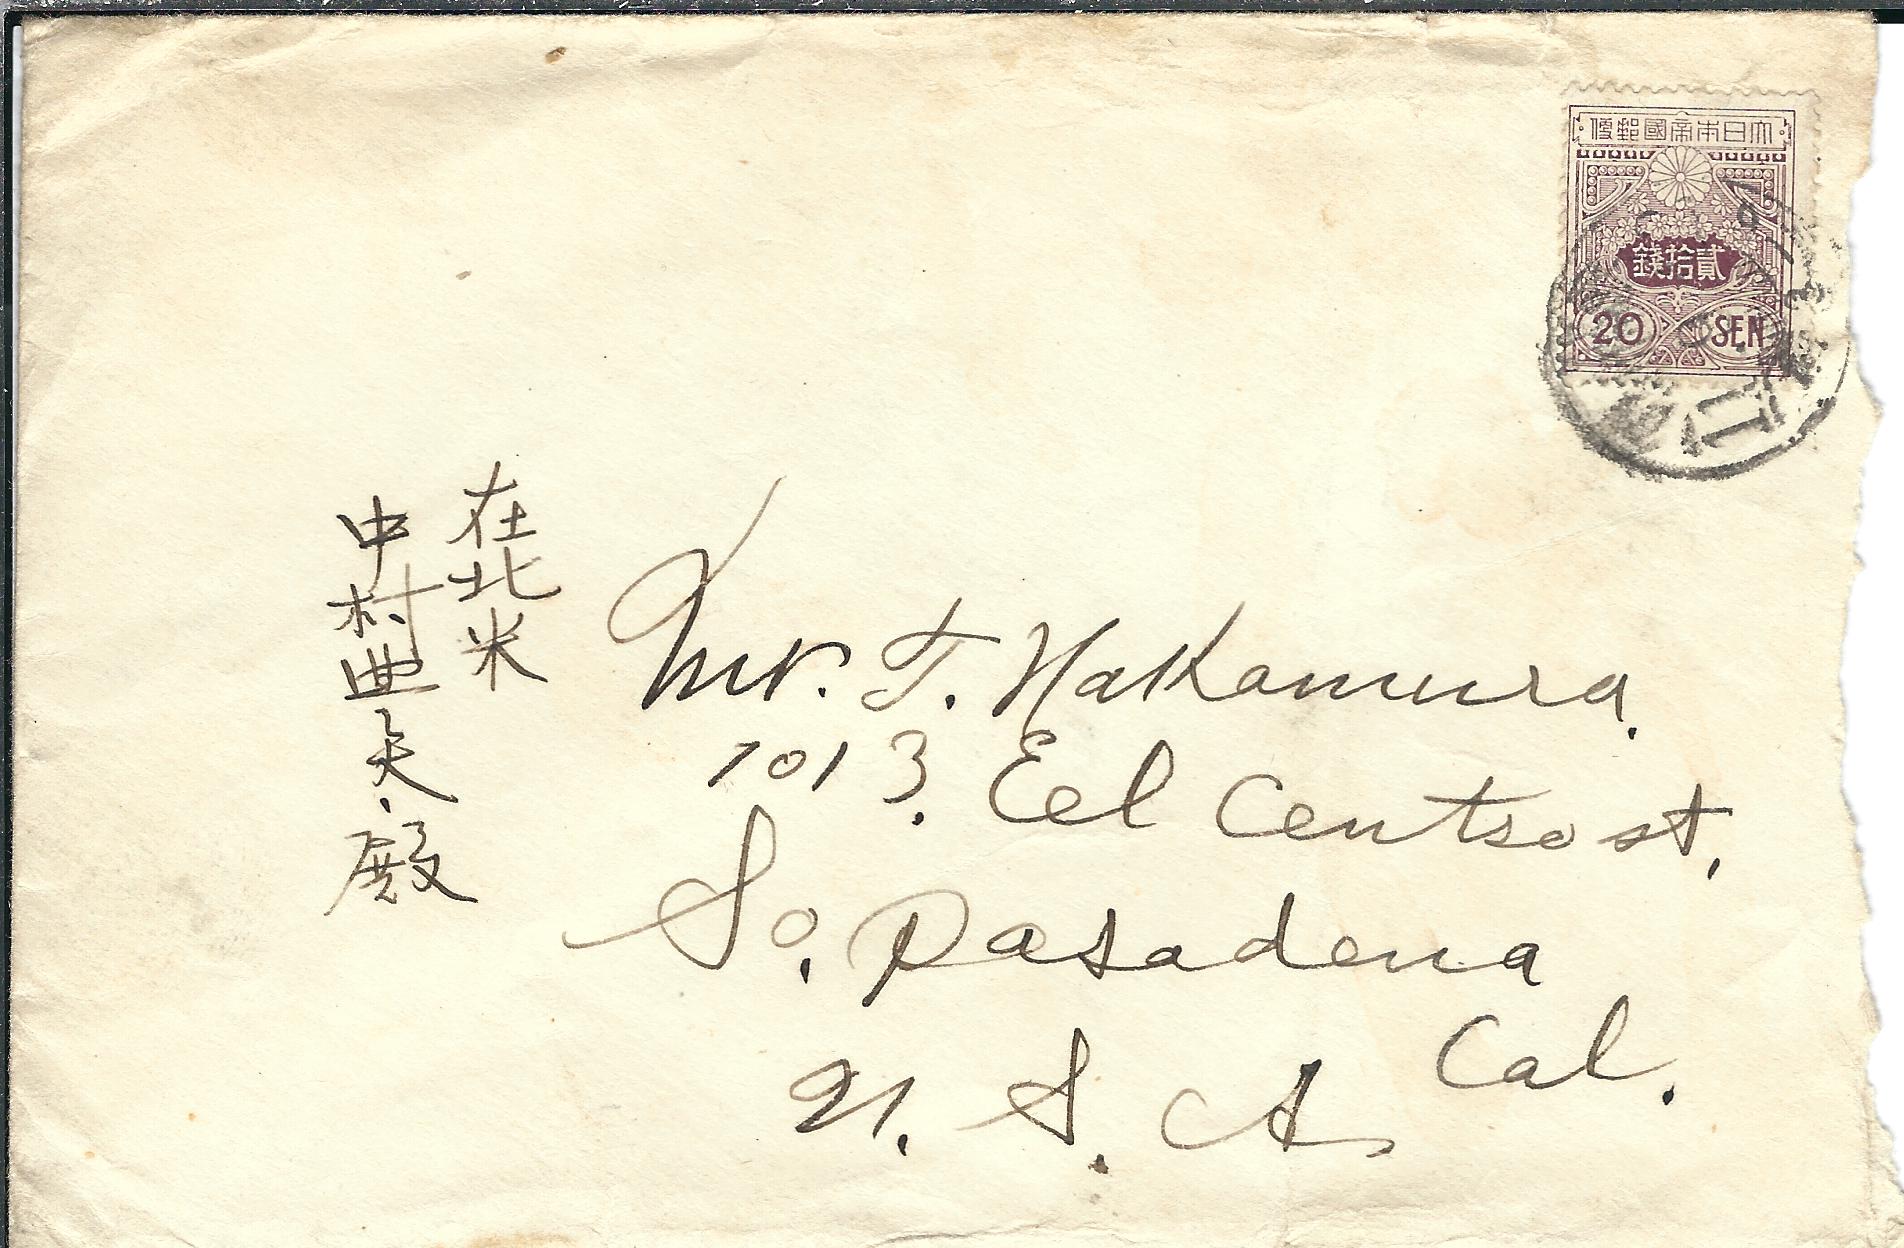 便郵國帝本日大
錢拾貳
20 SEN
在北米
中村典夫殿
Mr. T. Nakamura.
1013. Eel Centro st,
So, Pasadena
Cal.
U. S. A